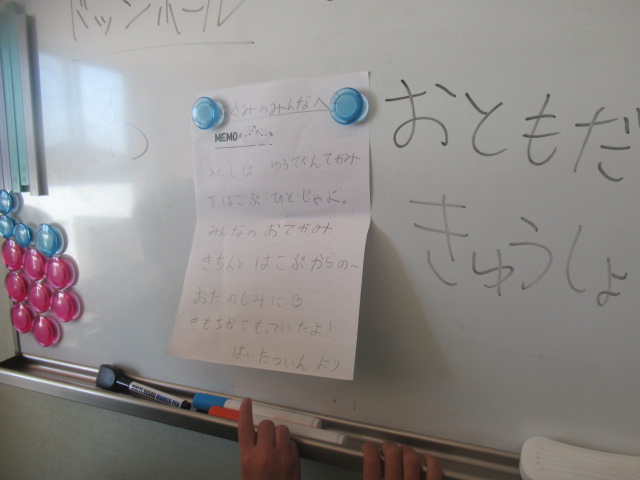 ドッジボール
ぐみのみんなへ
MEMO
わたしは ゆうびんてがみ
をはこぶ・ひとじゃよ。
みんなの おてがみ
きちんと はこぶからの~
おたのしみに☺
きもちがこもっていたよ!
はいたついん より
おともだ
きゅうしょ